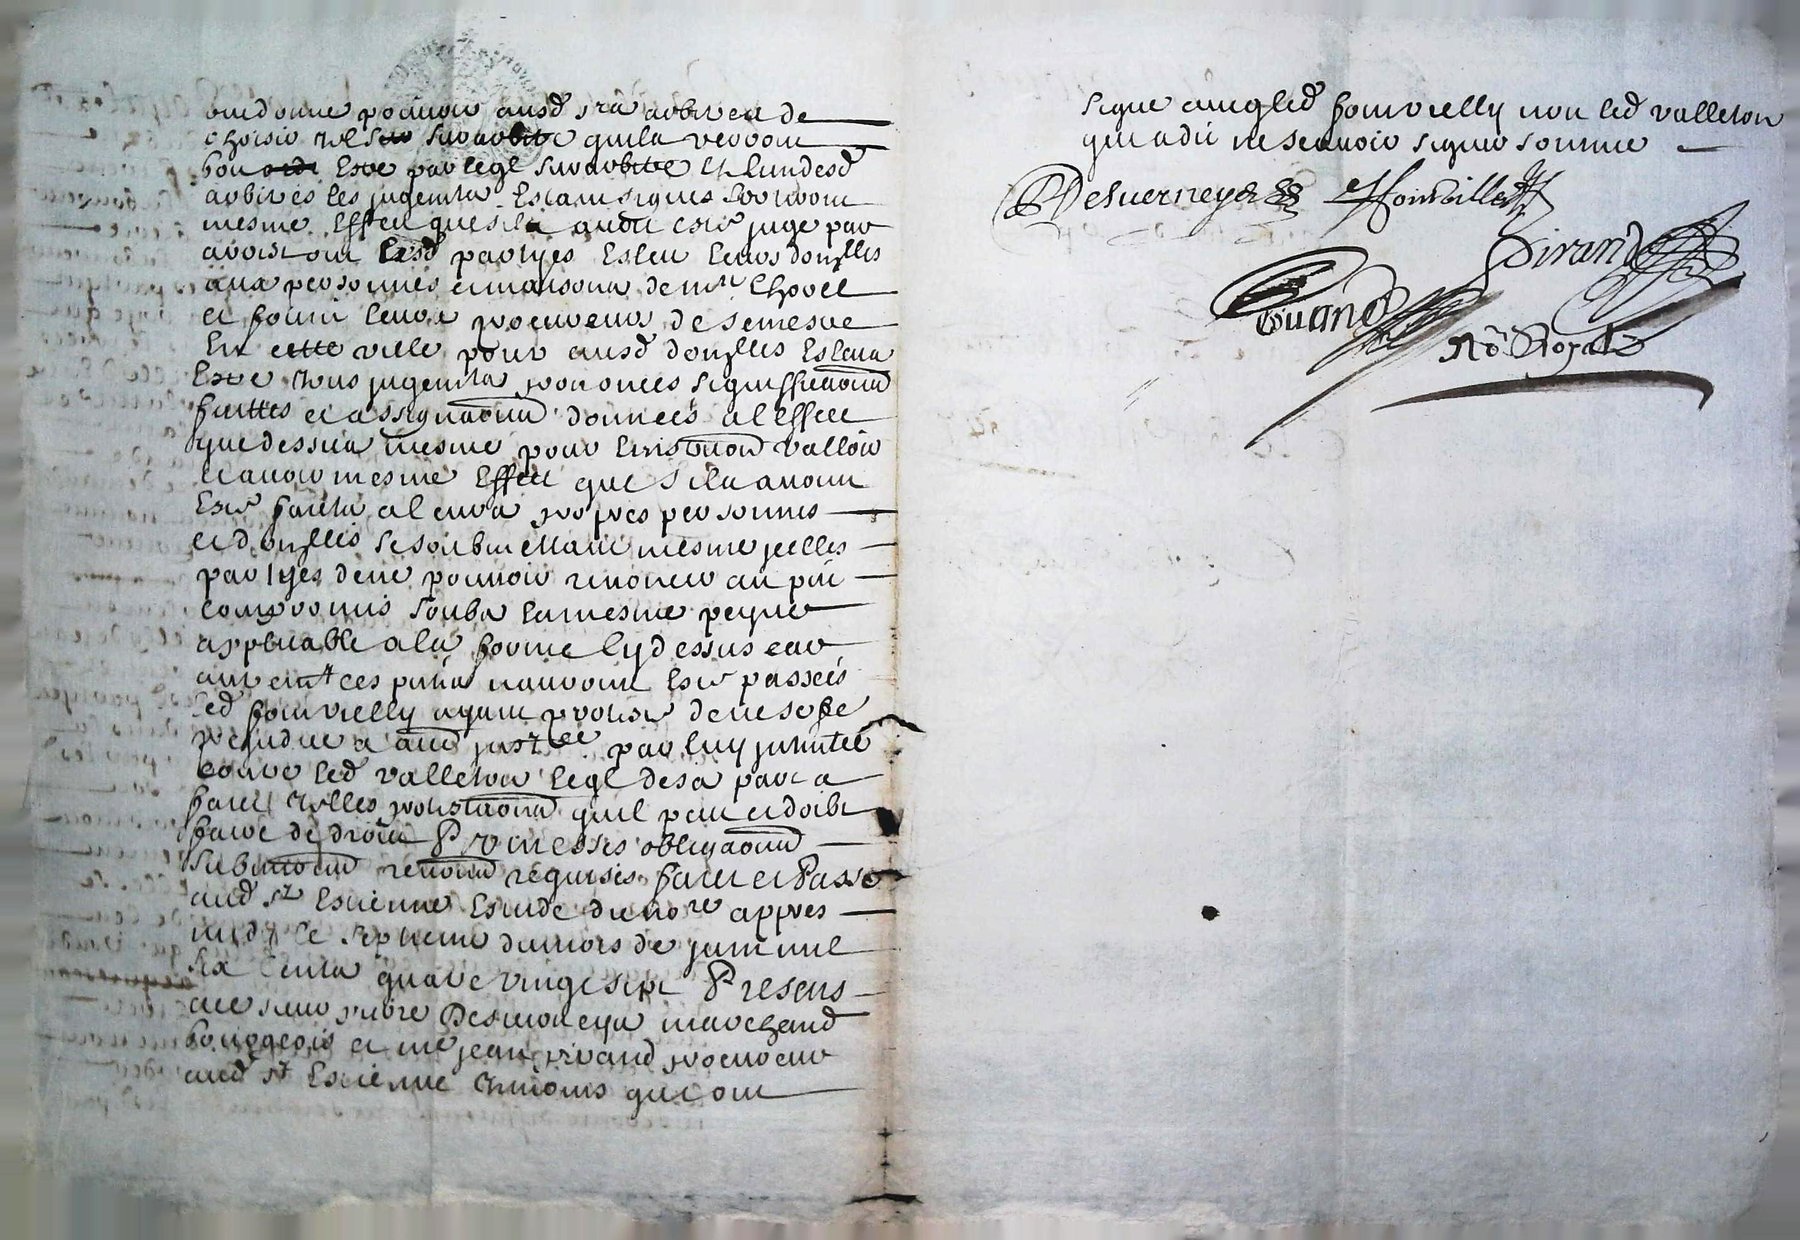 ont donné pouvoir ausd srs arbitres de
choisir tel surarbitre quils verront
bon estre par leql surarbitre et lun desd
arbitres les jugemts estant signes sortiront
mesme effect que sil avoit esté jugé par
ont lesd partyes esleu leurs domlles
aux personnes et maisons de mre Chovet
et leurs procureurs de
en cette ville pour ausd domlles esleus
estre tous jugemts prononcés significaons
faittes et assignaons données a leffect
que dessus mesme pour valloir
et avoir mesme effect que sils avoient
esté faicts a leurs propres personnes
et domlles se soubmettant mesme icelles
partyes de ne pouvoir renoncer au pnt
compromis soubs la mesme peyne
applicable a la forme cy dessus car
autremt ces pntes nauroient esté passées
led fonvielly ayant protesté de ne se fe
prejudice a par luy
contre led valleton leql de sa part a
faict telles protestaons quil peut et doibt
faire de droict Promesses obligaons
submissions renonõns requises faict et Passé
aud St Estienne estude du nore appres
midy le septieme du mois de juin mil
six cents quatre vingt sept Presens
marchand
bourgeois et me jean pirand procureur
aud St Estienne tesmoins qui ont
signé avec led fonvielly non led valleton
qui a dit ne scavoir signer sommé
Desverneys fonvielle
Pirand
No Royal